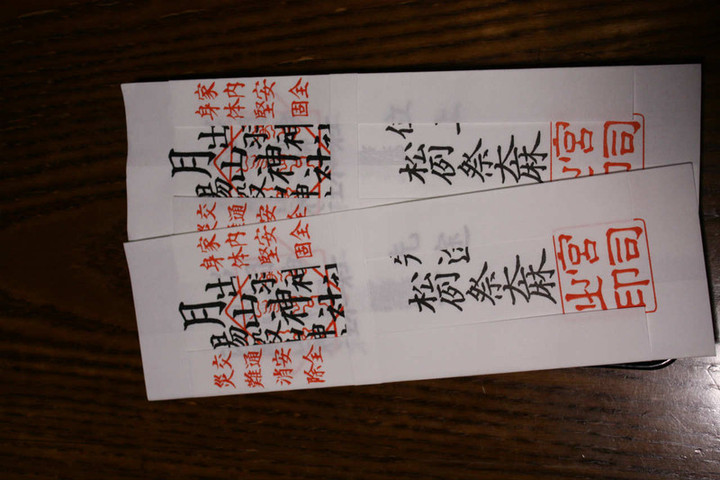 家内安全
身体堅固
出羽神
月山神
松例祭大麻
宮司
之印
交通安全
家内安全
身体堅固
出羽神
月山神
松例祭大麻
宮司
之印
交通安全
災難消除